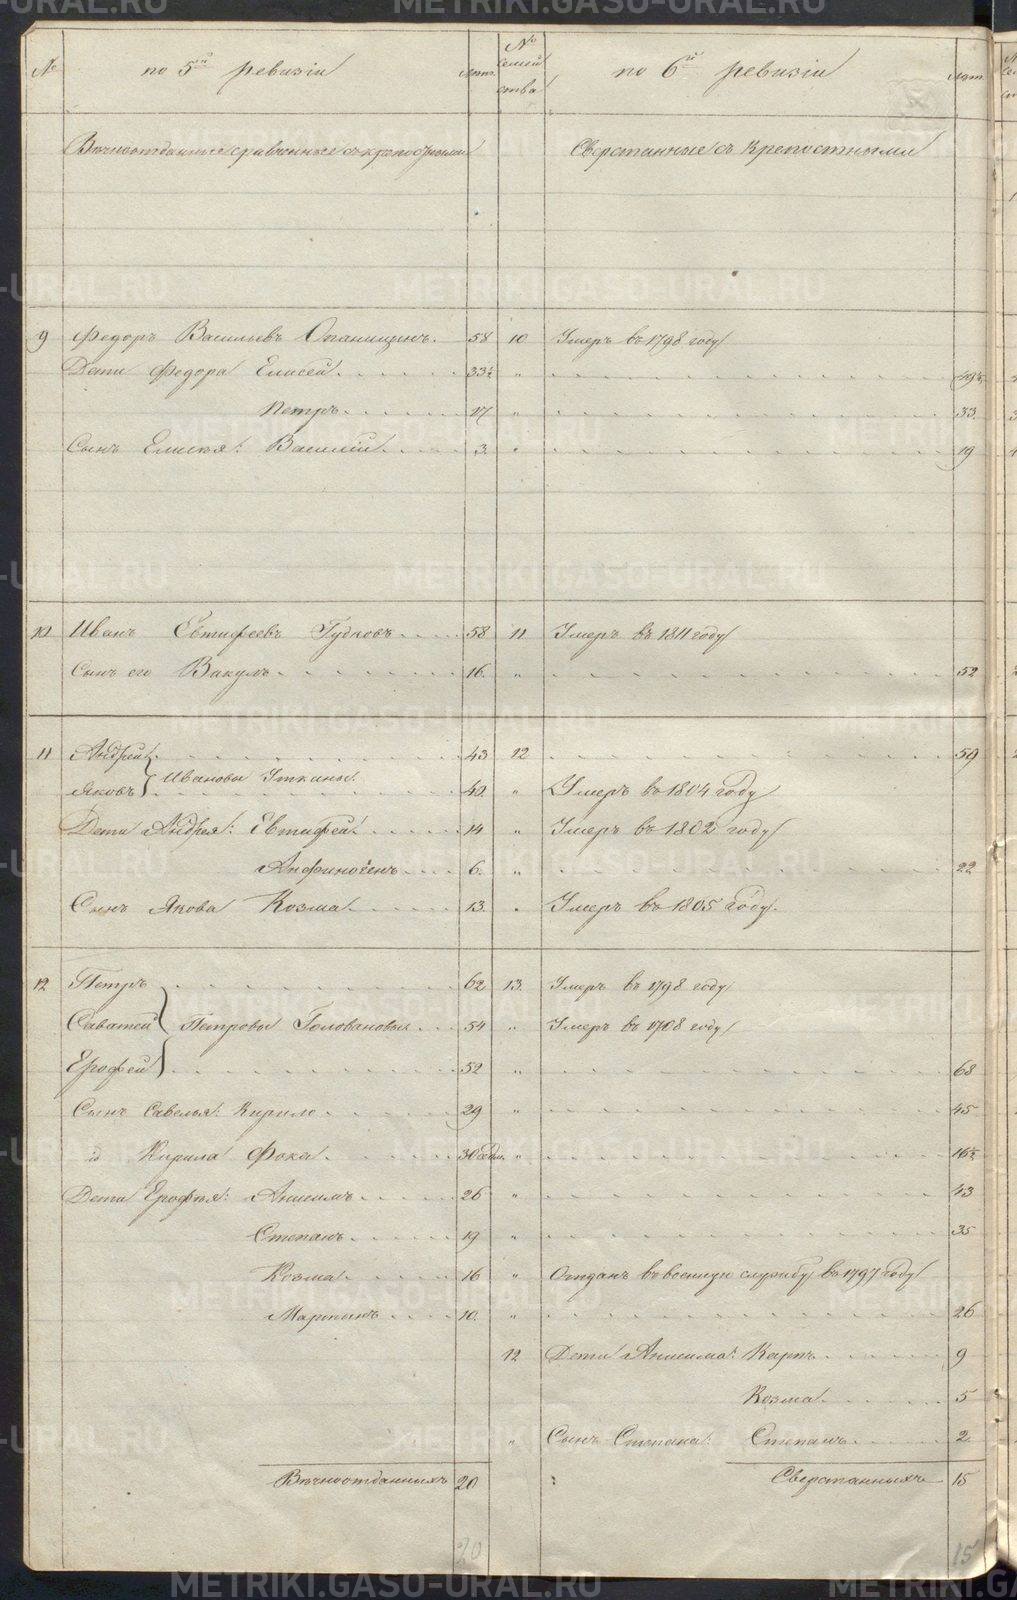 № по 5й ревизіи лѣта № семей ства по 6й ревизіи лѣта
Вѣчноотданные сравненные съ крѣпостными Сверстанные съ Крепостными
9 Федоръ Васильевъ Опаницынъ. 58 10 Умеръ въ 1798 году
Дети Федора Елисей 33½ " 49½
Петръ 17 " 33
Сынъ Елисея: Василій 3 " 19
10 Иванъ Евтифеевъ Гудковъ 58 11 Умеръ въ 1811 году
Сынъ его Вакулъ 16 " 52
11 Андрей 43 12 59
Ивановы Уткины
Яковъ 40 " Умеръ въ 1804 году
Дети Андрея: Евтифей 14 " Умеръ въ 1802 году
Анфиногенъ 6 " 22
Сынъ Якова Козма 13 " Умеръ въ 1805 году.
12 Петръ 62 13 Умеръ въ 1798 году
Саватей Петровы Головановы 54 " Умеръ въ 1708 году
Ерофей 52 " 68
Сынъ Савелья: Кирило 29 " 45
id Кирила Фока 30 " 16½
Дети Ерофея: Анисимъ 26 " 43
Степанъ 19 " 35
Козма 16 " Отданъ въ военную службу въ 1797 году
Мартынъ 10 " 26
12 Дети Анисима: Карпъ 9
Козма 5
" Сынъ Степана: Степанъ 2
Вѣчноотданныхъ 20 Сверстанныхъ 15
20 15
METRIKI.GASO-URAL.RU